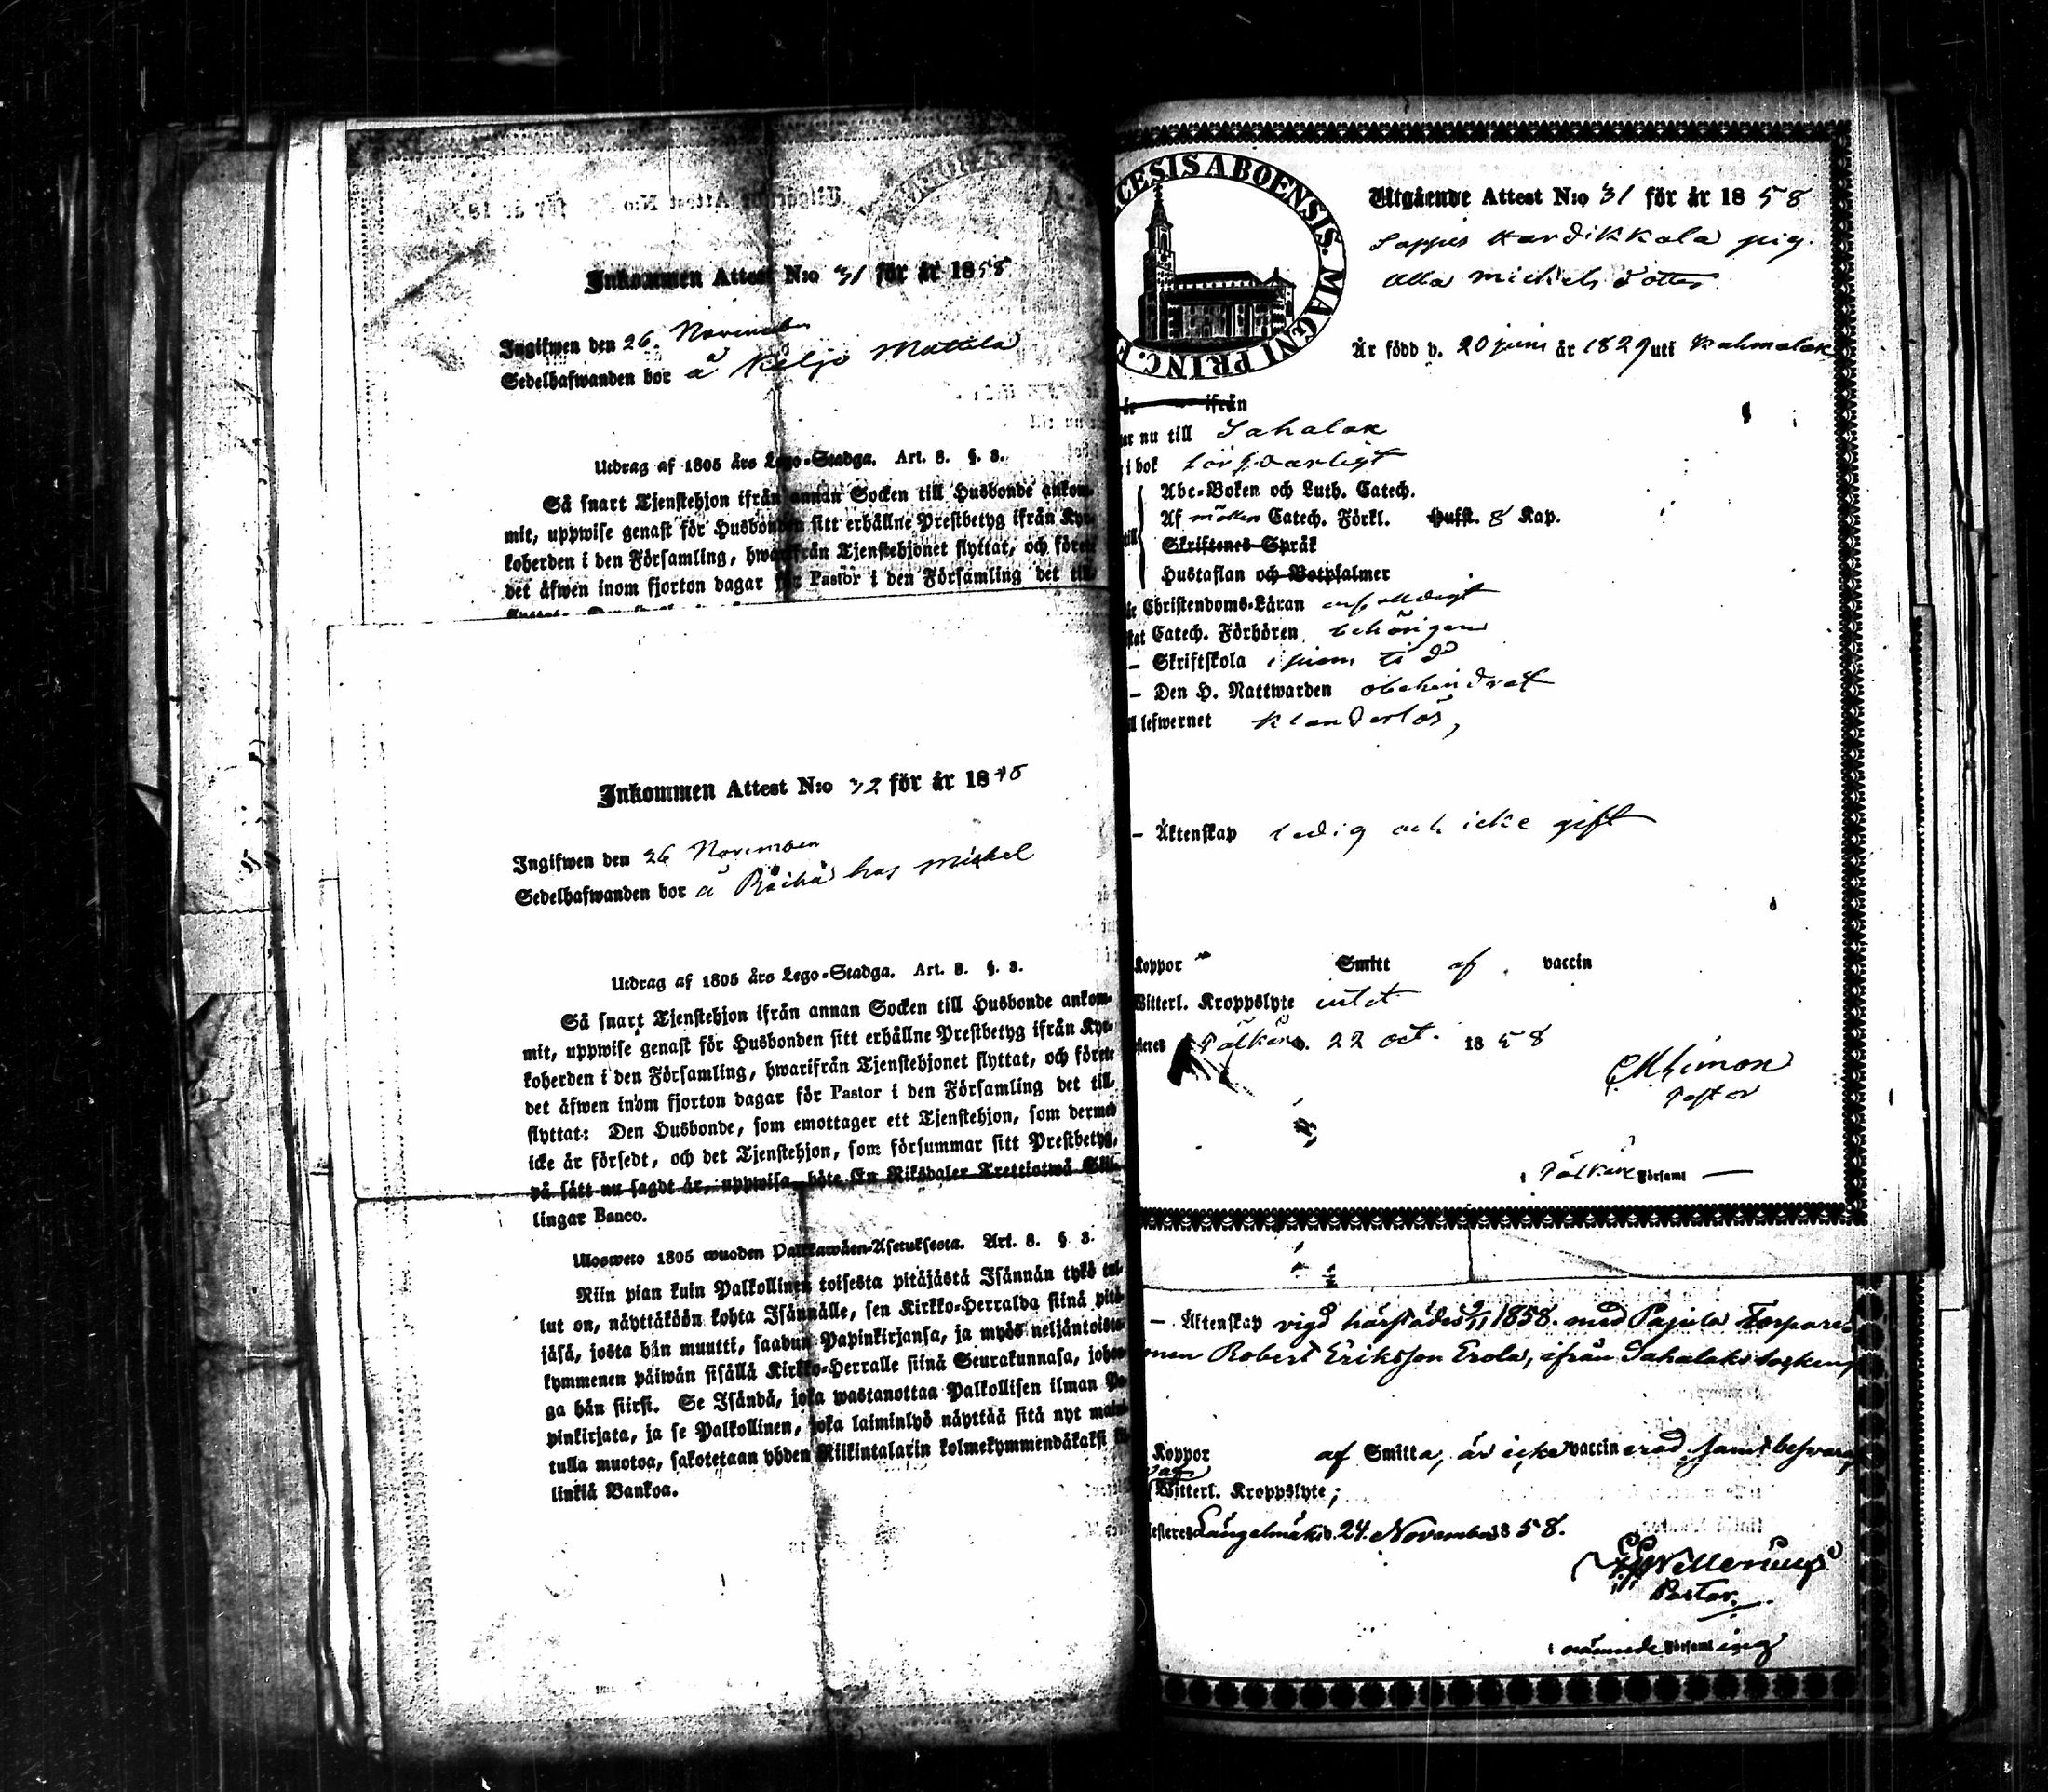 Inkommen Attest N:o 31 för år 1858
Ingifwen den 26. November
Sedelhafwanden bor å Keljo Mattila
Utdrag af 1805 års Lego-Stadga. Art. 8. §. 3.
Så snart Tjenstehjon ifrån annan Socken till Husbonde ankom-
mit, uppwise genast för Husbonden sitt erhållne Prestbetyg ifrån Kyr-
koherden i den Församling, hwarifrån Tjenstehjonet flyttat, och förete
det äfwen inom fjorton dagar för Pastor i den Församling det till-
Inkommen Attest N:o 32 för år 18
Ingifwen den 26 November
Sedelhafwanden bor å Räihä hos Michel
Utdrag af 1805 års Lego-Stadga. Art. 8. §. 3.
Så snart Tjenstehjon ifrån annan Socken till Husbonde ankom-
mit, uppwise genast för Husbonden sitt erhållne Prestbetyg ifrån Kyr-
koherden i den Församling, hwarifrån Tjenstehjonet flyttat, och förete
det äfwen inom fjorton dagar för Pastor i den Församling det till-
flyttat: Den Husbonde, som emottager ett Tjenstehjon, som dermed
icke är försedt, och det Tjenstehjon, som försummar sitt Prestbetyg,
på sätt nu sagdt är, uppwisa, böte En Riksdaler Trettiotwå Skil-
lingar Banco.
Ulosweto 1805 wuoden Palkkawäen-Asetuksesta. Art. 8. § 3.
Niin pian kuin Palkollinen toisesta pitäjästä Isännän tykö tul-
lut on, näyttäköön kohta Isännälle, sen Kirkko-Herralda siinä pitä-
jäsä, josta hän muutti, saadun Papinkirjansa, ja myös neljäntoista-
kymmenen päiwän sisällä Kirkko-Herralle siinä Seurakunnasa, johon-
ga hän siirsi. Se Isändä, joka wastanottaa Palkollisen ilman Pa-
pinkirjata, ja se Palkollinen, joka laiminlyö näyttää sitä nyt mai-
tulla muotoa, sakotetaan yhden Riikintalarin kolmekymmendäkaksi kil-
linkiä Bankoa.
CESIS ABOENSIS. MAGNI PRINC. F
Utgående Attest N:o 31 för år 1858
Hardikkala pig.
Ulla Michels dotter
Är född d. 20 juni år 1829 uti Kuhmalax
ifrån
nu till Sahalax
i bok försvarligt
Abc-Boken och Luth. Catech.
Af Catech. Förkl. Husst. 8 Kap.
Skriftenes Språk
Hustaflan och Botpsalmer
Christendoms-Läran
Catech. Förhören behörigen
– Skriftskola i sinom tid
– Den H. Nattwarden obehindrat
lefwernet klanderlös,
– Äktenskap ledig och icke gift
Koppor Smitt af vaccin
Witterl. Kroppslyte intet
Pälkäne d. 22 oct. 1858
Pastor
i Pälkäne Församl
– Äktenskap vigd härstädes 1858. med Pajula Torpare
Robert Eriksson Erola, ifrån Sahalaks socken
Koppor af Smitta, är icke vaccinerad, samt besvaras
af
Witterl. Kroppslyte;
Längelmäki d. 24. November 1858.
Pastor.
i nämnde Församling